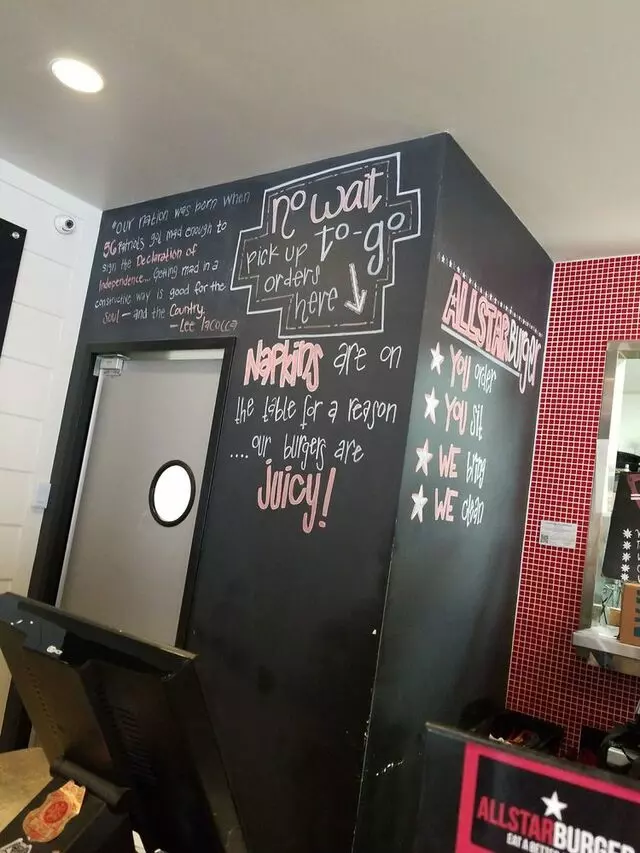 "Our nation was born when
56 Patriots got mad enough to
sign the Declaration of
Independence... Getting mad in a
constructive way is good for the
Soul - and the Country.
- Lee Iacocca
no wait
pick up to-go
orders
here
NAPKINS are on
the table for a reason
.... our burgers are
juicy!
ALLSTAR Burger
YOU order
YOU sit
WE bring
WE clean
ALLSTARBURGER
EAT A